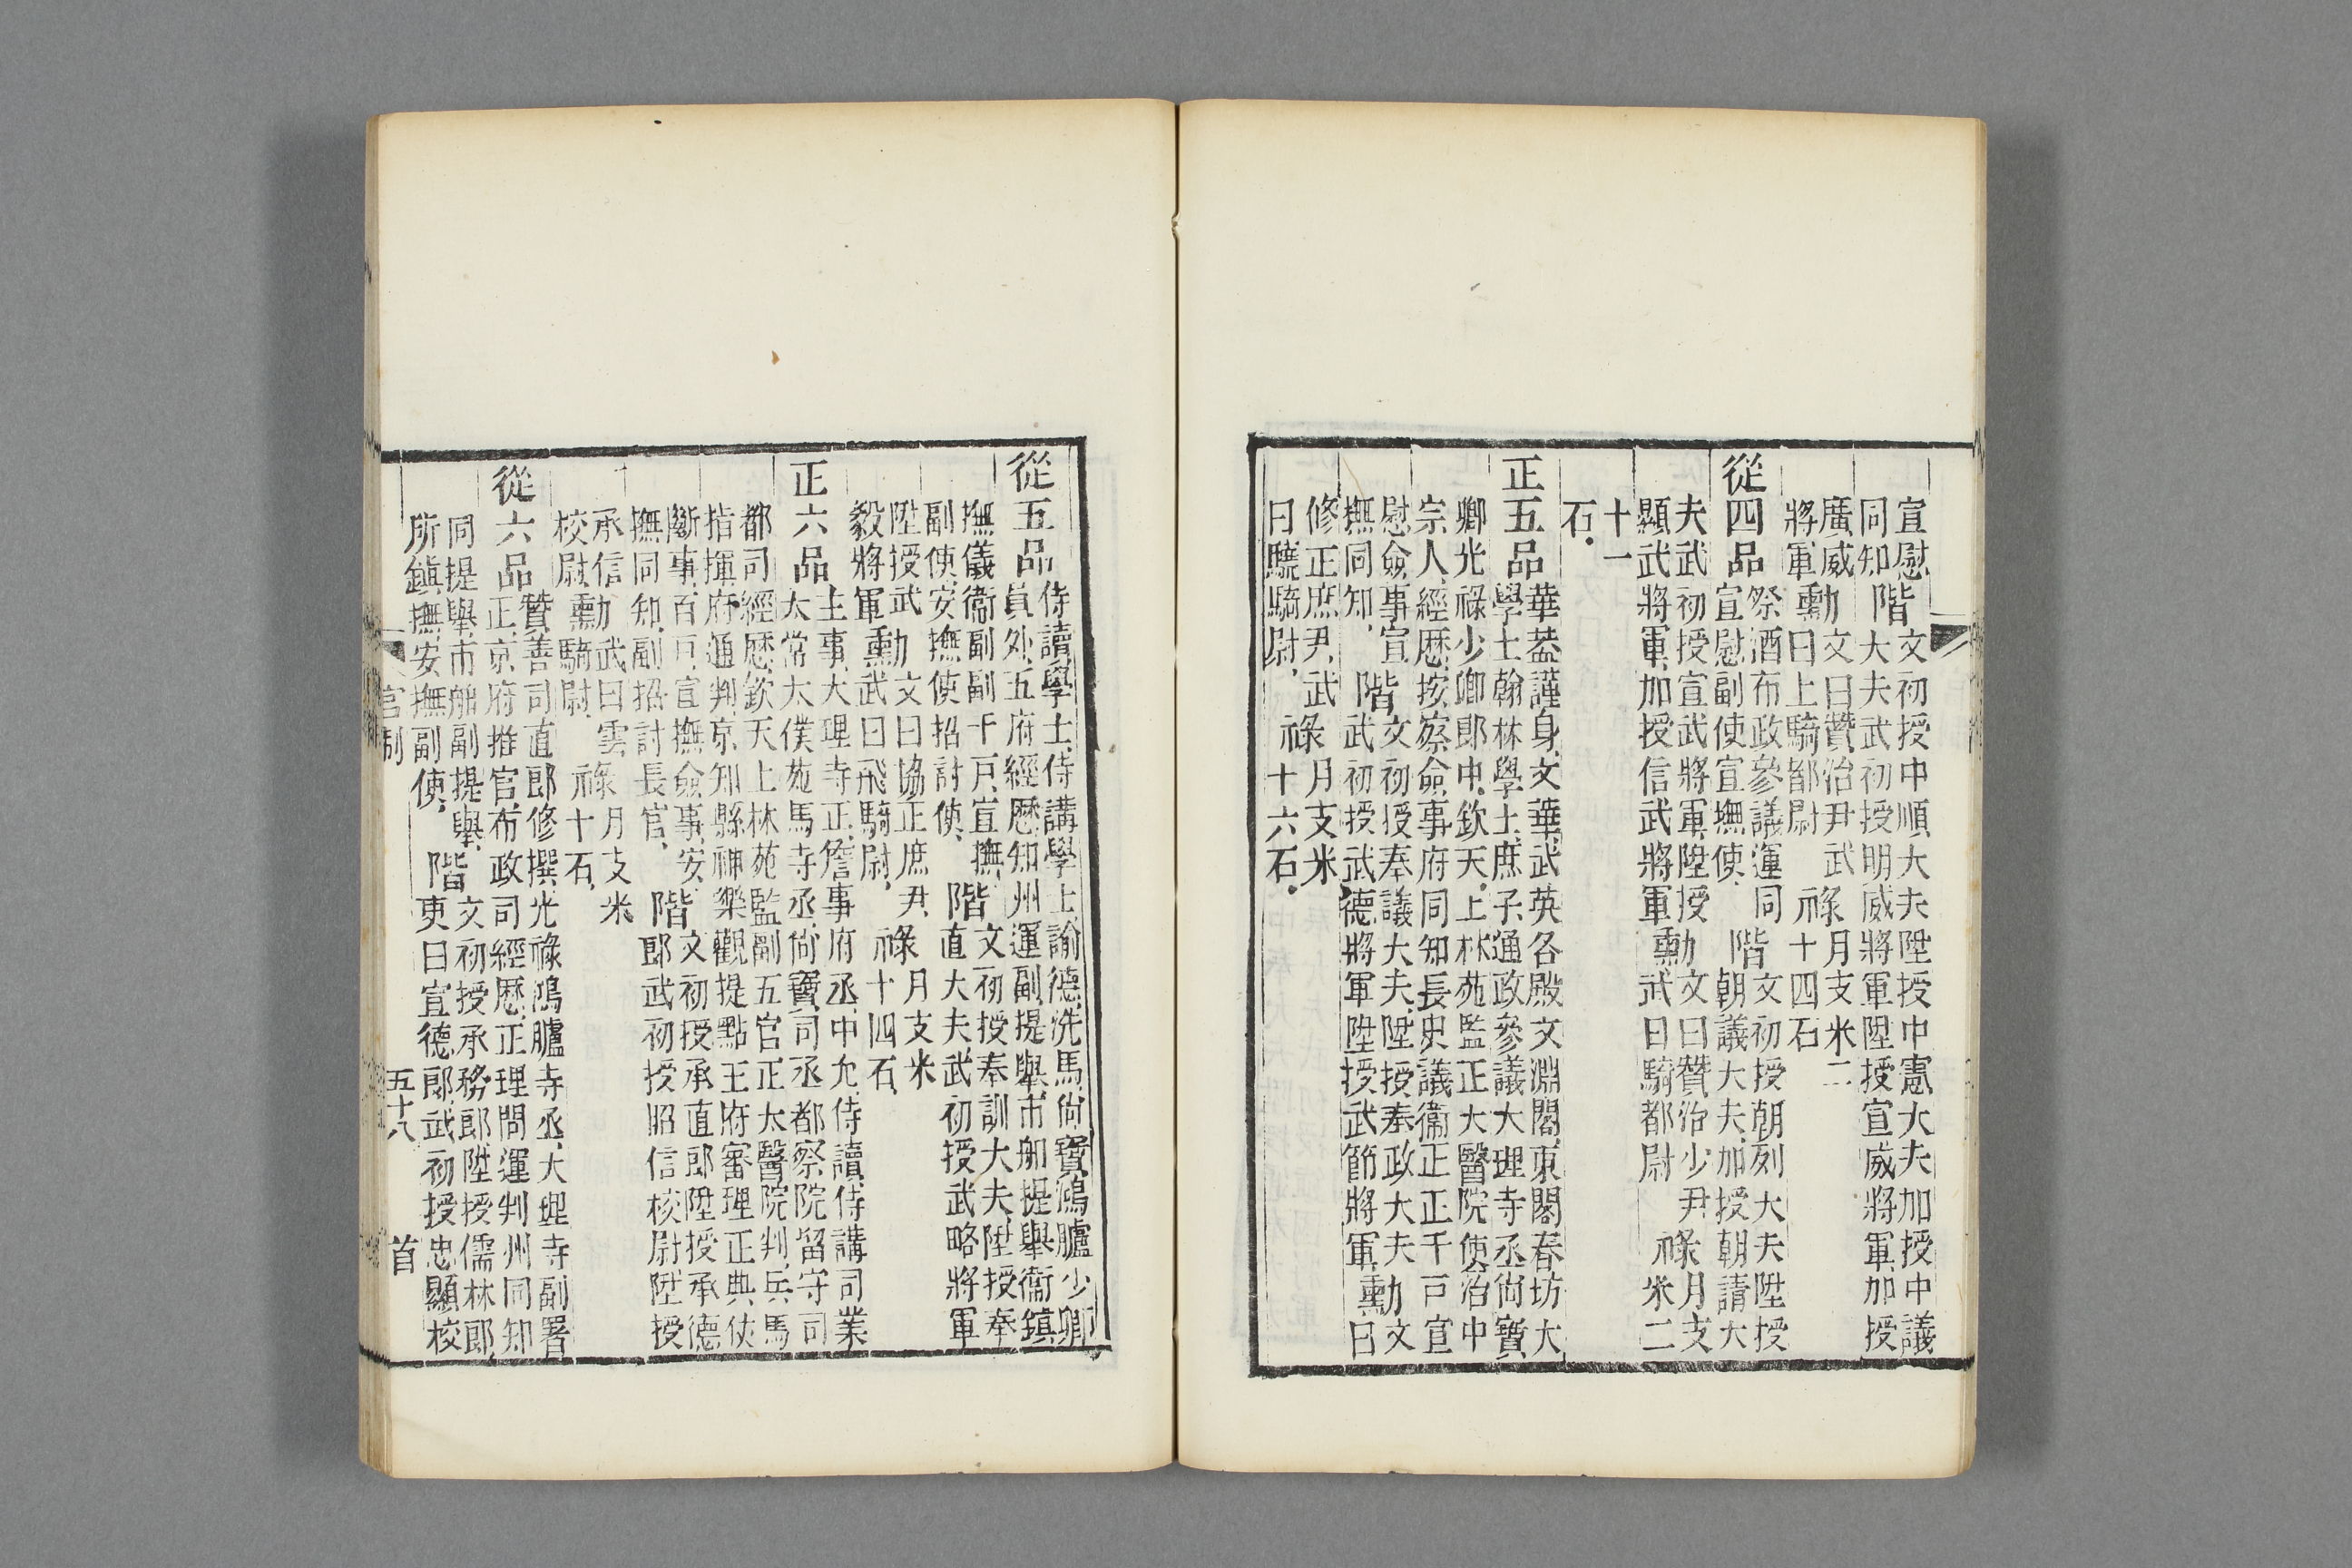 宣慰同知階文初授中順大夫陞授中憲大夫加授中議大夫武初授明威將軍陞授宣威將軍加授
廣威將軍勳文曰贊治尹武曰上騎都尉祿月支米二十四石
從四品祭酒布政參議運同宣慰副使宣撫使階文初授朝列大夫陞授朝議大夫加授朝請大
夫武初授宣武將軍陞授顯武將軍加授信武將軍勳文曰贊治少尹武曰騎都尉祿月支米二
十一石
正五品華葢謹身文華武英各殿文淵閣東閣春坊大學士翰林學士庶子通政參議大理寺丞尙寶
卿光祿少卿郎中欽天上林苑監正大醫院使治中宗人經歷按察僉事府同知長史議衞正正千戸宣
慰僉事宣撫同知階文初授奉議大夫陞授奉政大夫武初授武德將軍陞授武節將軍勳文曰
修正庶尹武曰驍騎尉祿月支米十六石
從五品侍讀學士侍講學士諭德洗馬尙寶鴻臚少卿員外五府經歷知州運副提舉市舶提舉衞鎮
撫儀衞副副千戸宣撫副使安撫使招討使階文初授奉訓大夫陞授奉直大夫武初授武略將軍
陞授武毅將軍勳文曰協正庶尹武曰飛騎尉祿月支米十四石
正六品主事大理寺正詹事府丞中允侍讀侍講司業太常太僕苑馬寺丞尙寶司丞都察院留守司
都司經歷欽天上林苑監副五官正太醫院判兵馬指揮府通判京知縣神樂觀提點王府審理正典仗
斷事百戸宣撫僉事安撫同知副招討長官階文初授承直郎陞授承德郎武初授昭信校尉陞授
承信校尉勳武曰雲騎尉祿月支米十石
從六品贊善司直郎修撰光祿鴻臚寺丞大理寺副署正京府推官布政司經歷正理問運判州同知
同提舉市舶副提舉所鎮撫安撫副使階文初授承務郎陞授儒林郎吏曰宣德郎武初授忠顯校
官制 五十八 首